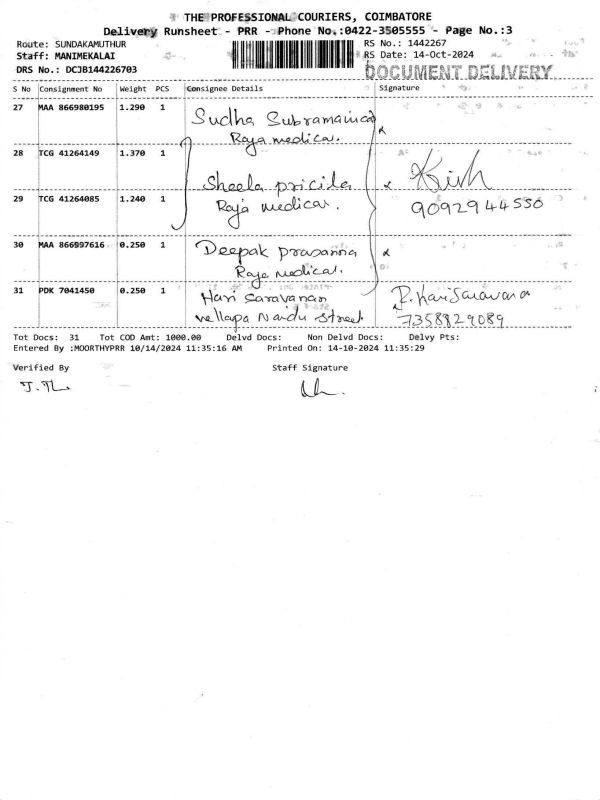 THE PROFESSIONAL COURIERS, COIMBATORE
Delivery Runsheet - PRR - Phone No.:0422-3505555 - Page No.:3
Route: SUNDAKAMUTHUR RS No.: 1442267
Staff: MANIMEKALAI RS Date: 14-Oct-2024
DRS No.: DCJB144226703 DOCUMENT DELIVERY
S No Consignment No Weight PCS Consignee Details Signature
27 MAA 866980195 1.290 1 Sudha Subramanica
Raja medical.
28 TCG 41264149 1.370 1
Sheela pricila
29 TCG 41264085 1.240 1 Raja medical. 9092944550
30 MAA 866997616 0.250 1 Deepak prasanna
Raja medical.
31 PDK 7041450 0.250 1 Hari Saravanan R. Hari Saravana
vellapa Naidu Street 7358829089
Tot Docs: 31 Tot COD Amt: 1000.00 Delvd Docs: Non Delvd Docs: Delvy Pts:
Entered By :MOORTHYPRR 10/14/2024 11:35:16 AM Printed On: 14-10-2024 11:35:29
Verified By Staff Signature